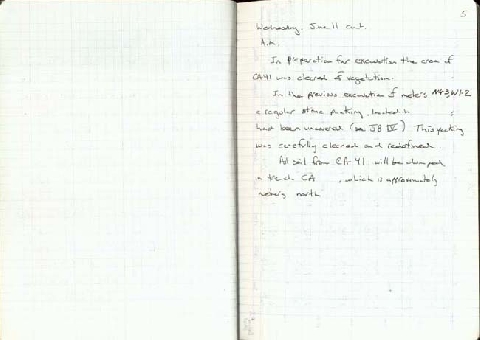 5
Wednesday, June 11 cont.
A.m.
In preparation for excavation the area of
CA41 was cleared of vegetation.
In the previous excavation of meters N43, W1-2
a regular stone packing,
had been uncovered (see JB IV) This packing
was carefully cleaned and redefined.
All soil from CA-41 will be
CA , which is approximately
north